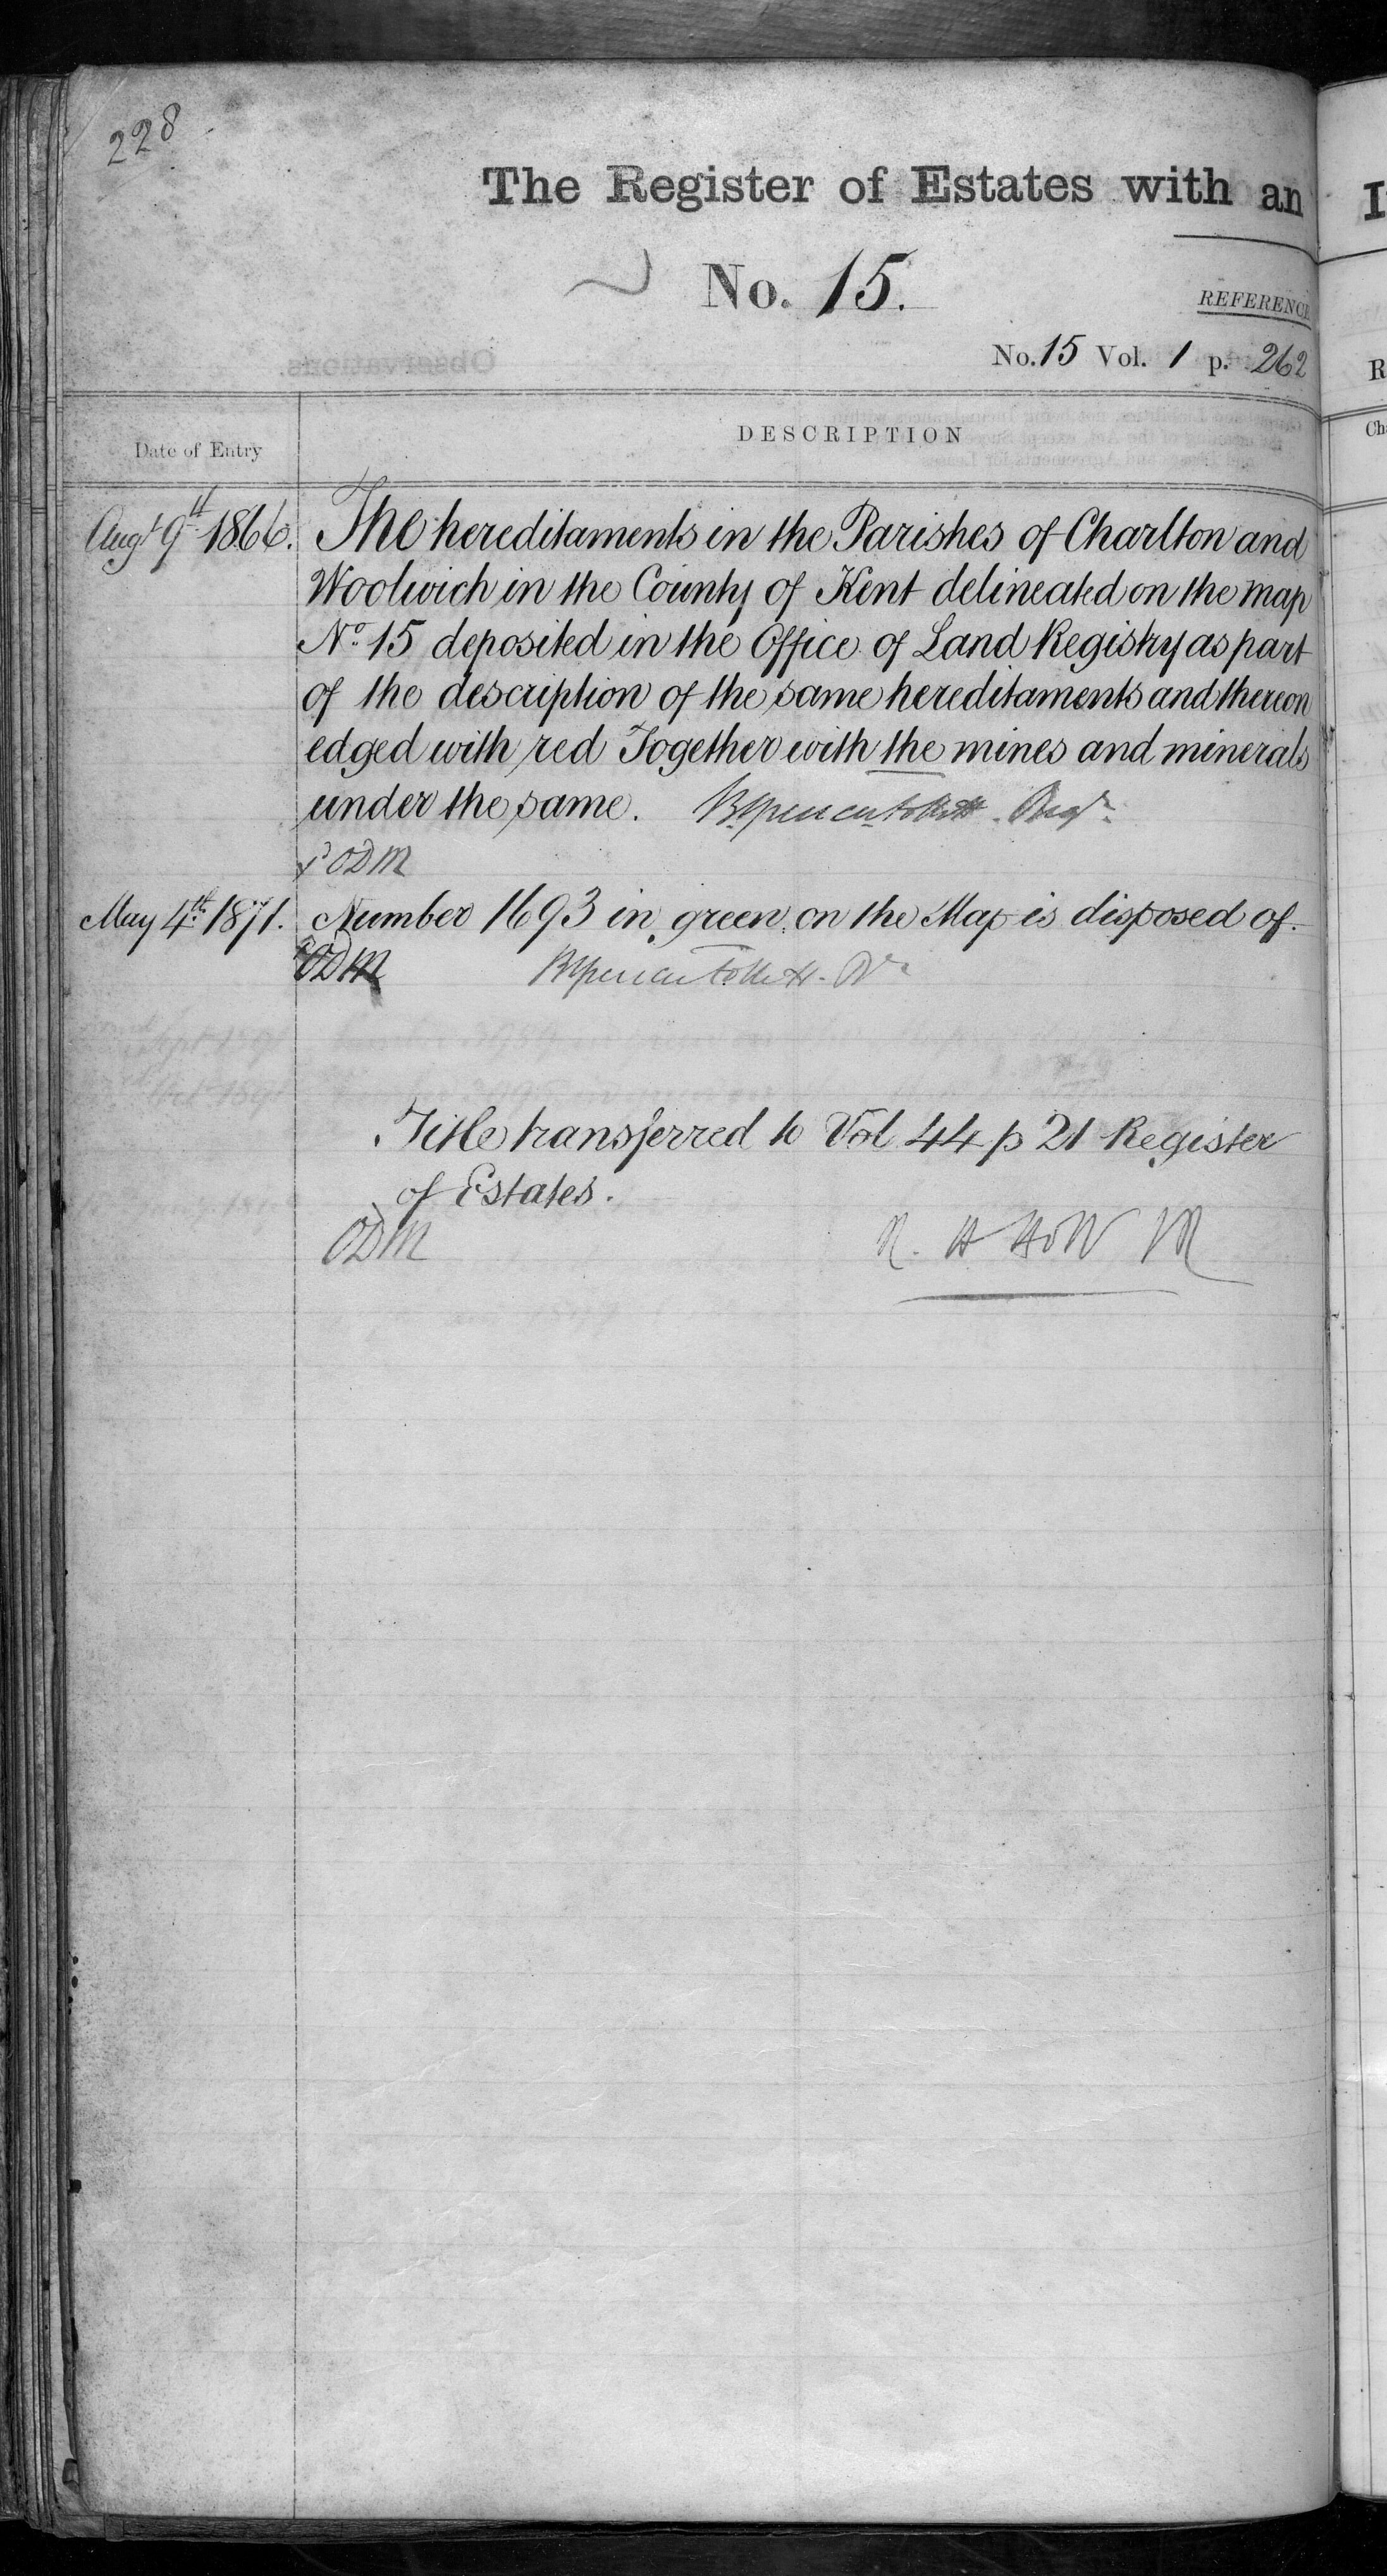 228
The Register of Estates with an
No. 15.
REFERENCE
No. 15 Vol. 1 p. 262
Date of Entry
DESCRIPTION
Augt 9th 1866. The hereditaments in the Parishes of Charlton and
Woolwich in the County of Kent delineated on the map
No. 15 deposited in the Office of Land Registry as part
of the description of the same hereditaments and thereon
edged with red Together with the mines and minerals
under the same.
ODM
May 4th 1871. Number 1693 in green on the Map is disposed of.
ODM
Title transferred to Vol 44 p 21 Register
of Estates.
ODM